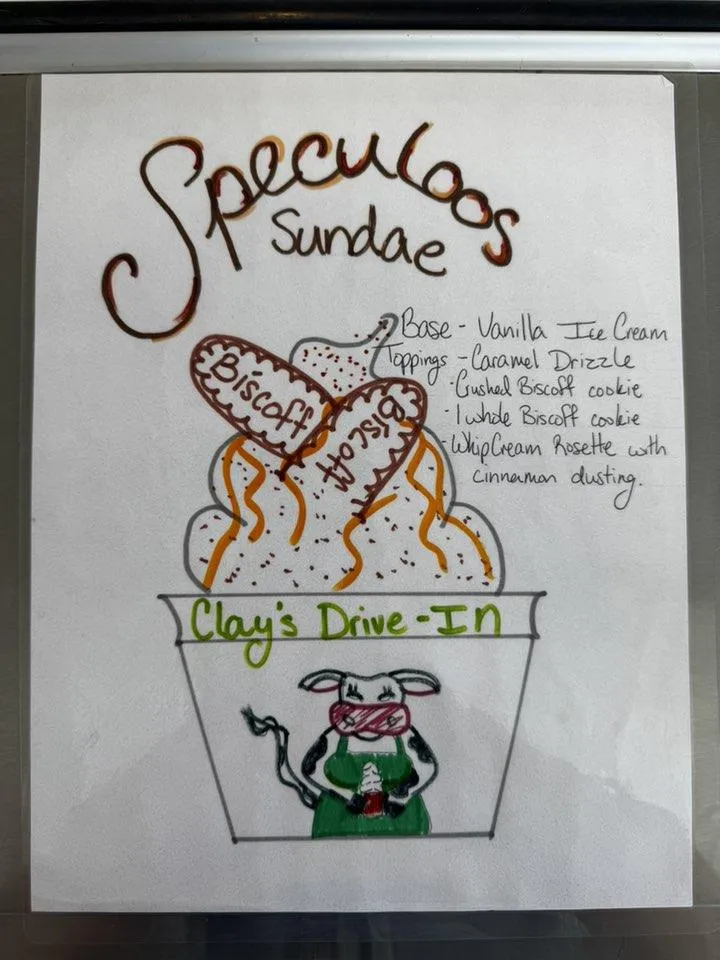 Speculoos
Sundae
Base - Vanilla Ice Cream
Toppings - Caramel Drizzle
· Crushed Biscoff cookie
· 1 whole Biscoff cookie
· Whip Cream Rosette with
cinnamon dusting.
Biscoff
Biscoff
Clay's Drive-In